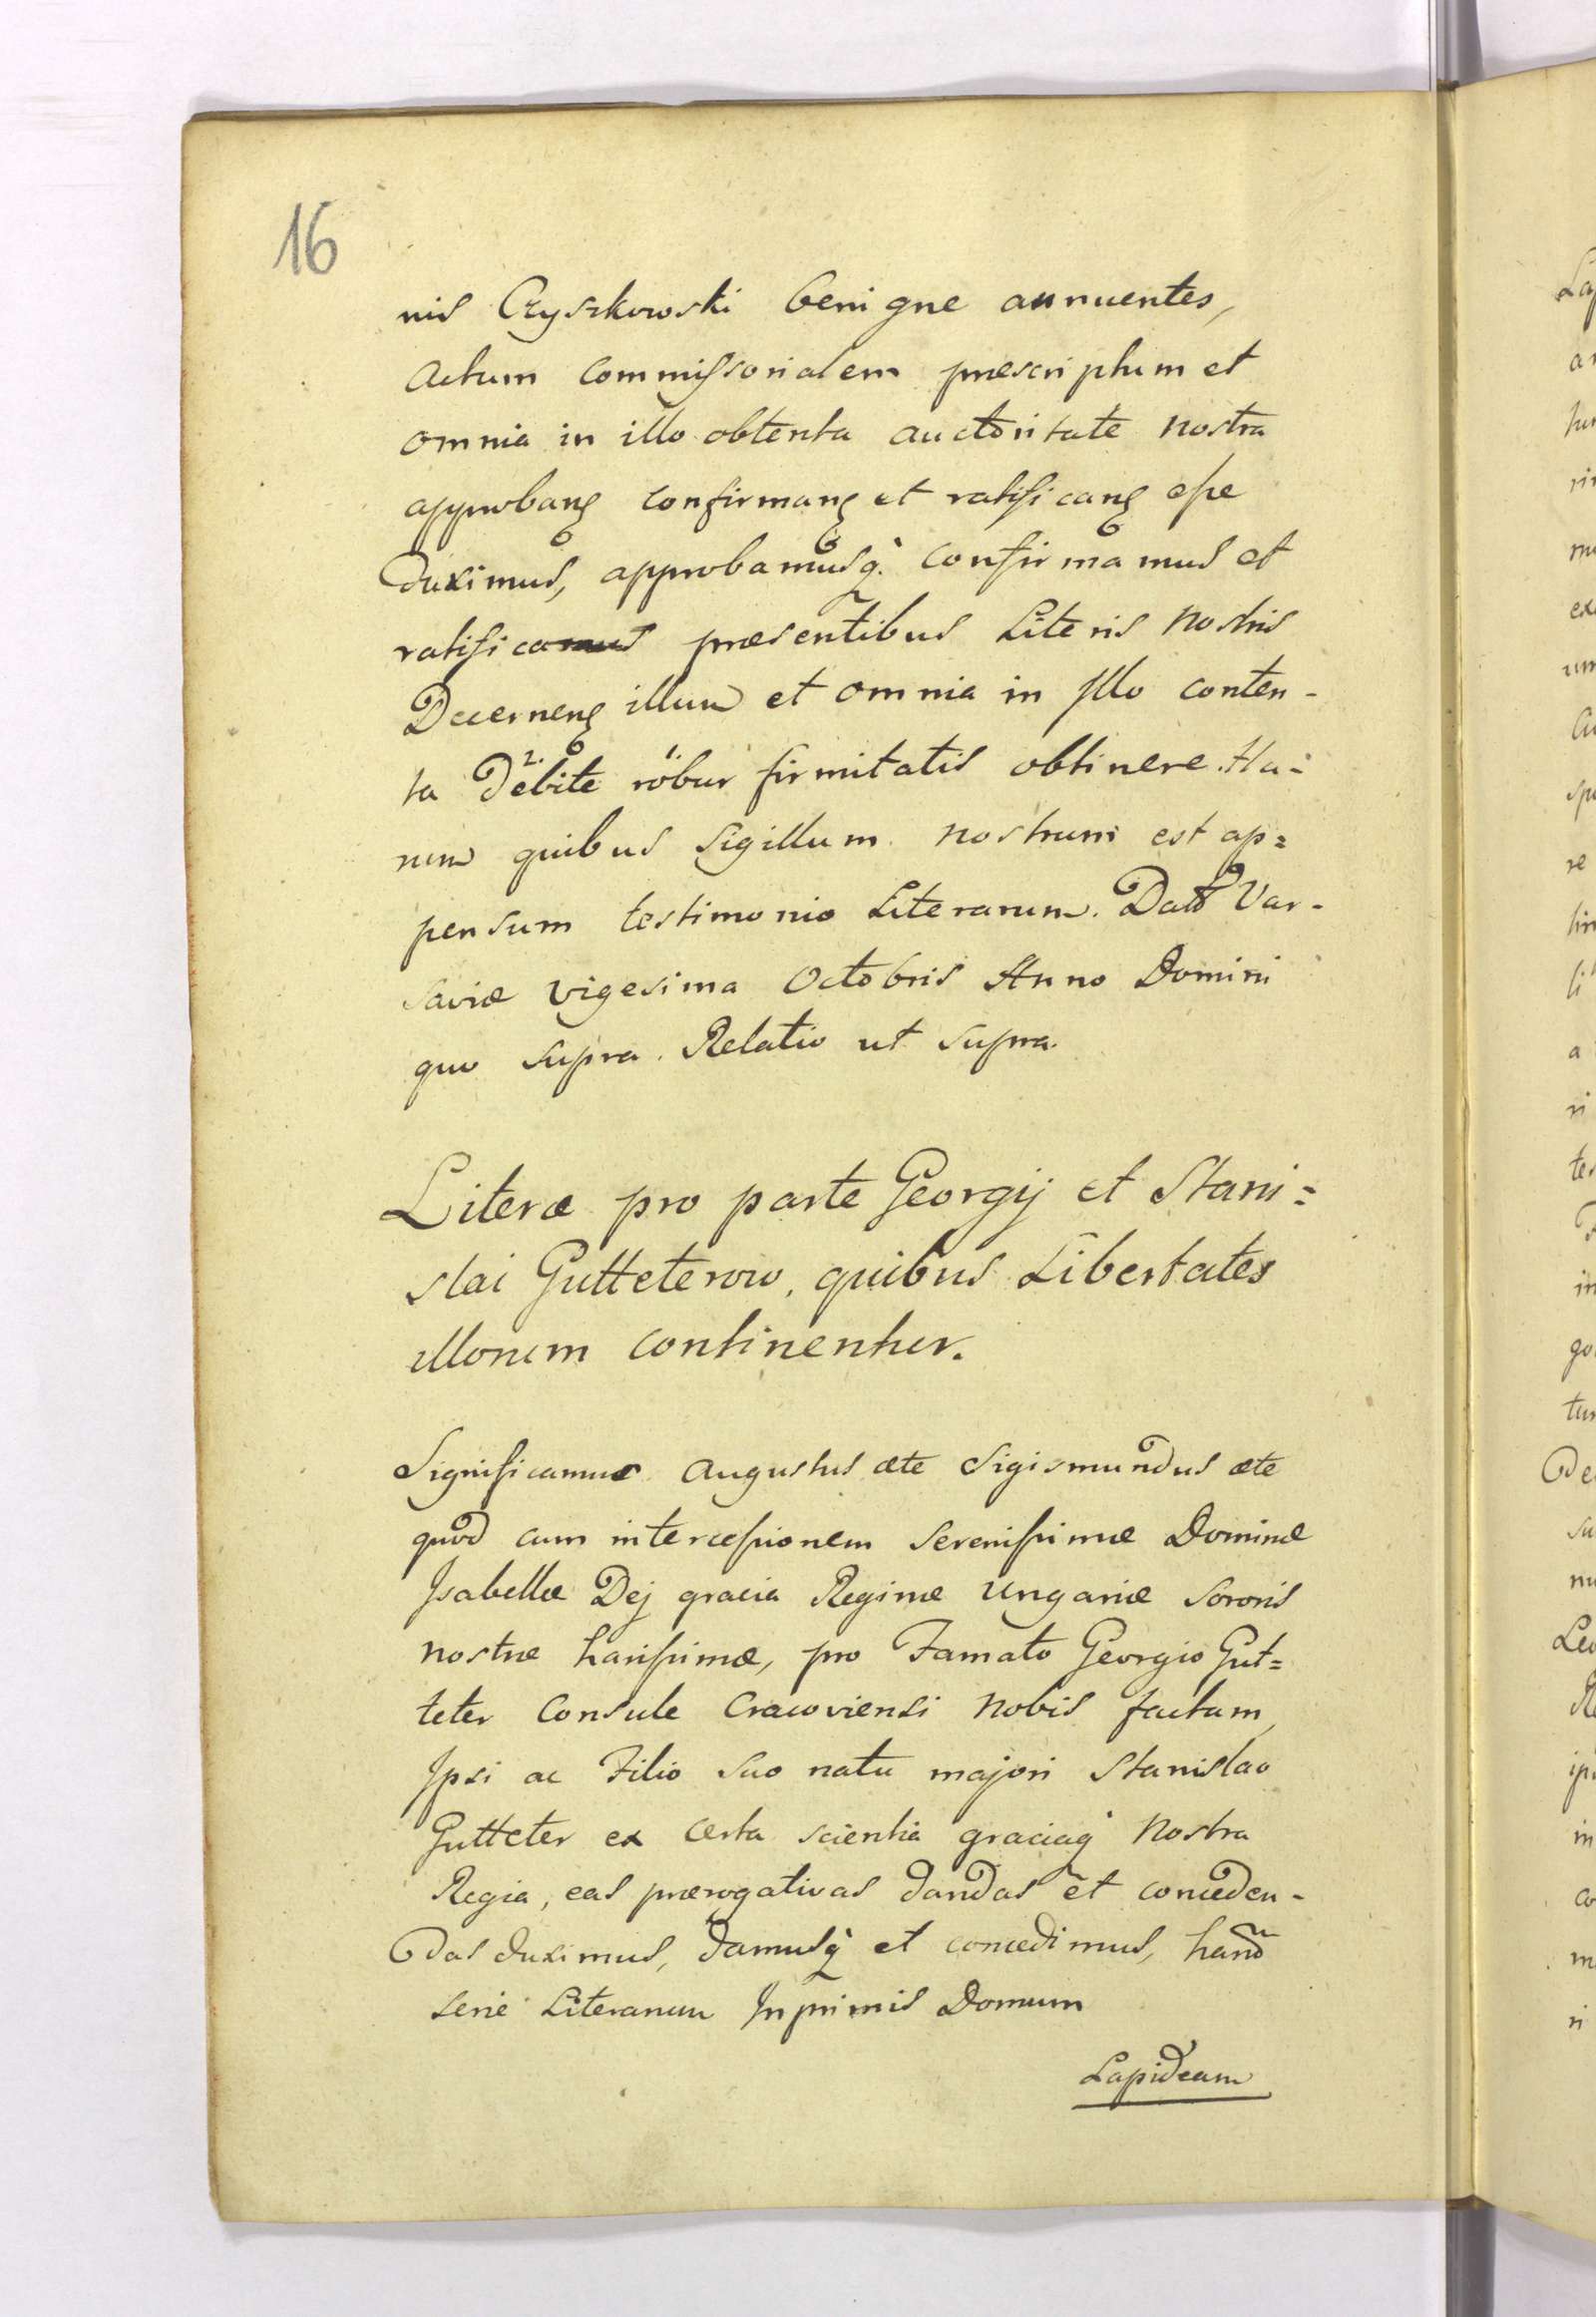 16
nis Czyszkowski benigne annuentes,
Actum commissorialem præscriptum et
omnia in illo obtenta auctoritate nostra
approbanꝗ confirmanꝗ et ratificanꝗ esse
duximus, approbamusq̀. confirmamus et
ratificamus præsentibus Literis nostris
Decernenꝗ illum et omnia in Jllo conten-
ta debite robur firmitatis obtinere. Ha-
rum quibus Sigillum nostrum est ap=
pensum testimonio Literarum. Dato Var-
saviæ vigesima Octobris Anno Domini
quo supra. Relatio ut supra.
Literæ pro parte Georgij et Stani=
slai Gutteterow, quibus Libertates
illorum continentur.
Significamus Augustus æte Sigismundus æte
quod cum intercessionem Serenissimæ Dominæ
Jsabellæ Dej gracia Reginæ Ungariæ Sororis
nostræ harissimæ, pro Famato Georgio Gut=
teter Consule Cracoviensi nobis factam,
Jpsi ac Filio suo natu majori Stanislao
Gutteter ex certa scientia graciaq̀ nostra
Regia, eas prærogativas dandas et conceden-
das duximus, damusq̀ et concedimus, hand
serie Literarum Jnprimis Domum
Lapideam